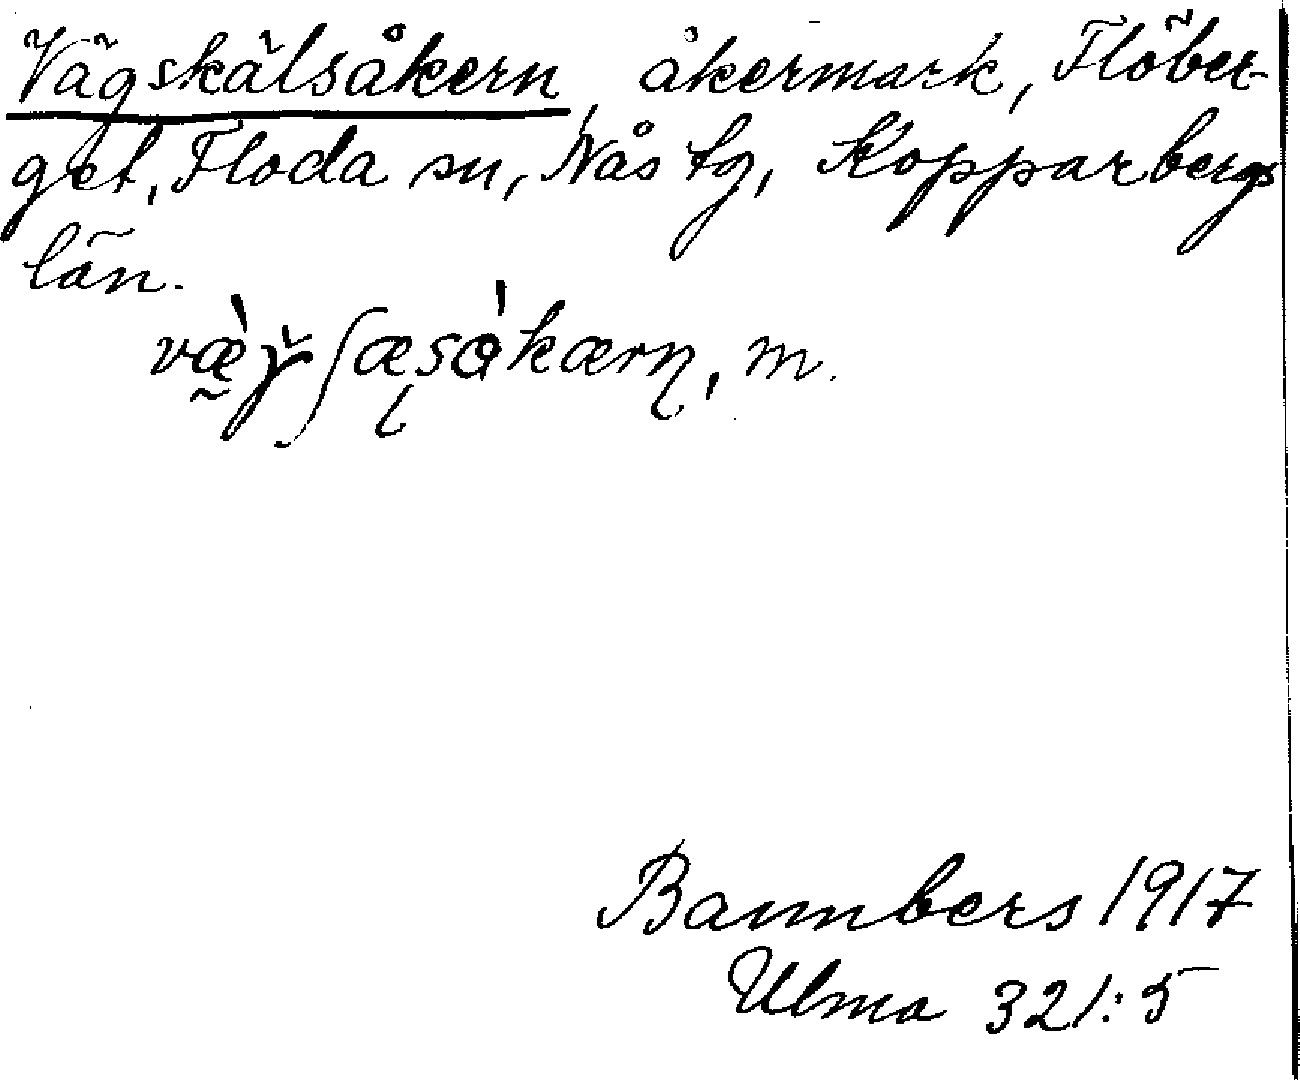 Vägskälsåkern, åkermark, Flöber-
get, Floda sn, Nås tg, Kopparbergs
län.
væ̀ɣʃæsåkærn, m.
Bannbers 1917
Ulma 321:5